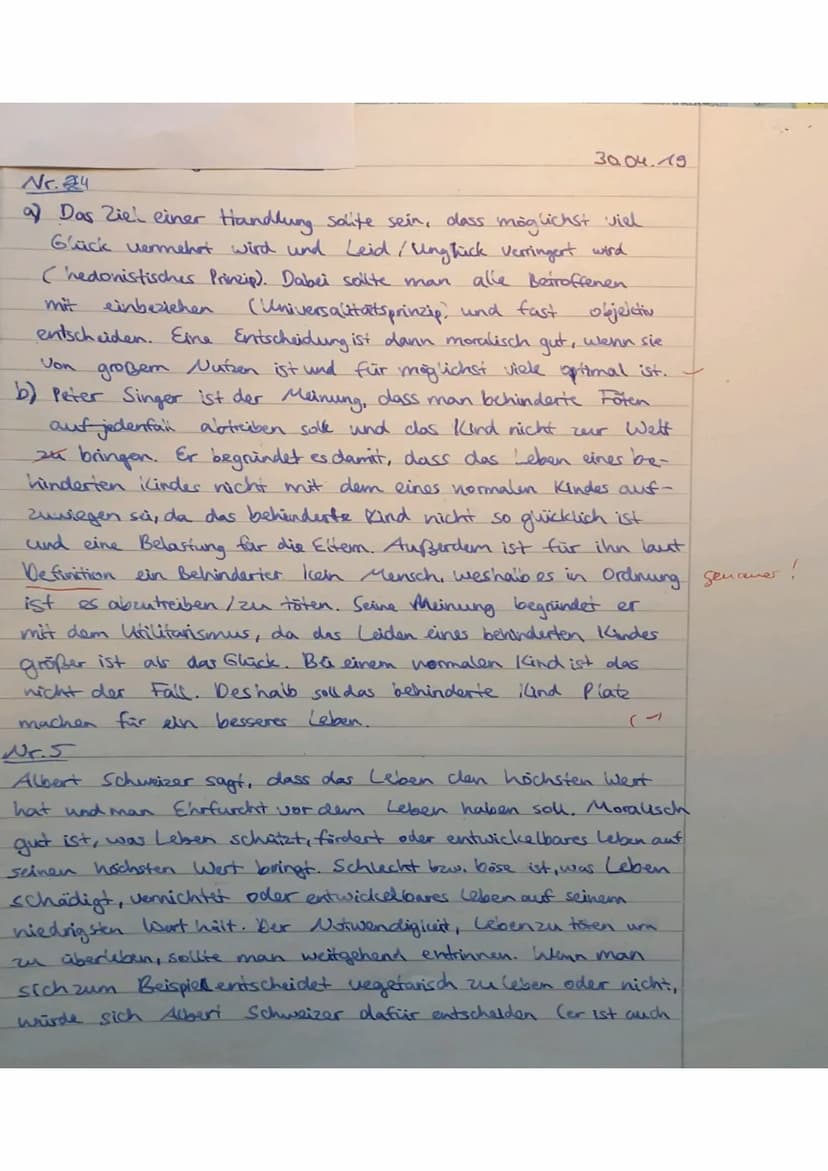 30.04.19
Nr. 4
a) Das Ziel einer Handlung sollte sein, dass möglichst viel
Glück vermehrt wird und Leid / Unglück verringert wird
(hedonistisches Prinzip). Dabei sollte man alle Betroffenen
mit einbeziehen (Universalitätsprinzip) und fast objektiv
entscheiden. Eine Entscheidung ist dann moralisch gut, wenn sie
von großem Nutzen ist und für möglichst viele optimal ist.
b) Peter Singer ist der Meinung, dass man behinderte Föten
auf jedenfall abtreiben soll und das Kind nicht zur Welt
zu bringen. Er begründet es damit, dass das Leben eines be-
hinderten Kindes nicht mit dem eines normalen Kindes auf-
zuwiegen sei, da das behinderte Kind nicht so glücklich ist
und eine Belastung für die Eltern. Außerdem ist für ihn laut
Definition ein Behinderter kein Mensch, weshalb es in Ordnung genauer!
ist es abzutreiben / zu töten. Seine Meinung begründet er
mit dem Utilitarismus, da das Leiden eines behinderten Kindes
größer ist als das Glück. Bei einem normalen Kind ist das
nicht der Fall. Deshalb soll das behinderte Kind Platz
machen für ein besseres Leben.
Nr. 5
Albert Schweizer sagt, dass das Leben den höchsten Wert
hat und man Ehrfurcht vor dem Leben haben soll. Moralisch
gut ist, was Leben schätzt, fördert oder entwickelbares Leben auf
seinen höchsten Wert bringt. Schlecht bzw. böse ist, was Leben
schädigt, vernichtet oder entwickelbares Leben auf seinem
niedrigsten Wert hält. Der Notwendigkeit, Leben zu töten um
zu überleben, sollte man weitgehend entrinnen. Wenn man
sich zum Beispiel entscheidet vegetarisch zu leben oder nicht,
würde sich Albert Schweizer dafür entscheiden (er ist auch